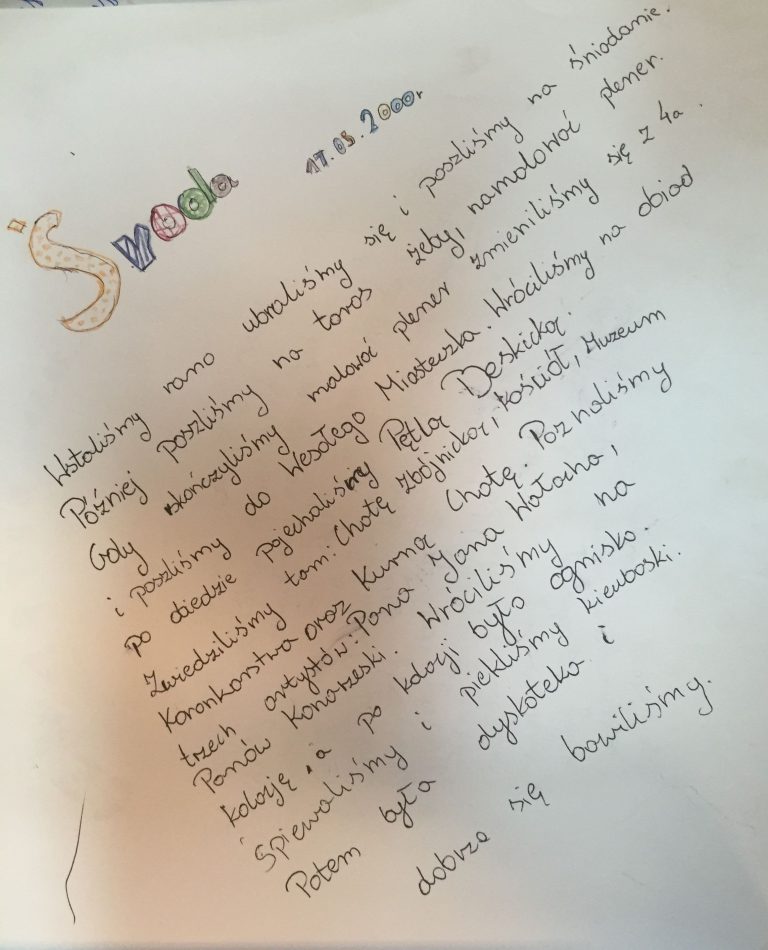 Środa 17.05.2000r
Wstaliśmy rano ubraliśmy się i poszliśmy na śniadanie.
Później poszliśmy na taras żeby, namalować plener.
Gdy skończyliśmy malować plener zmieniliśmy się z 4a.
i poszliśmy do Wesołego Miasteczka. Wróciliśmy na obiad
po obiedzie pojechaliśmy Pętlą Beskidzką.
Zwiedziliśmy tam: Chatę Zbójnicką, kościół, Muzeum
Koronkarstwa oraz Kurną Chatę. Poznaliśmy
trzech artystów: Pana Jana Wałacha,
Panów Konarzeski. Wróciliśmy na
kolację, a po kolacji było ognisko.
Śpiewaliśmy i piekliśmy kiełbaski.
Potem była dyskoteka i
dobrze się bawiliśmy.